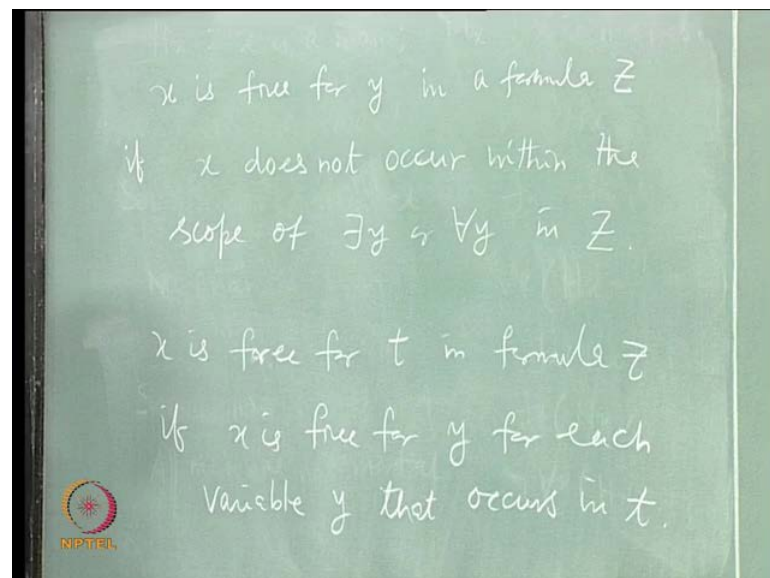 x is free for y in a formula Z
if x does not occur within the
scope of ∃y or ∀y in Z.
x is free for t in formula Z
if x is free for y for each
variable y that occurs in t.
NPTEL